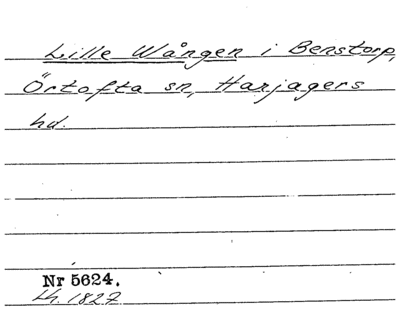 Lille Wången i Benstorp,
Örtofta sn, Harjagers
hd.
Nr 5624.
Lh. 1827